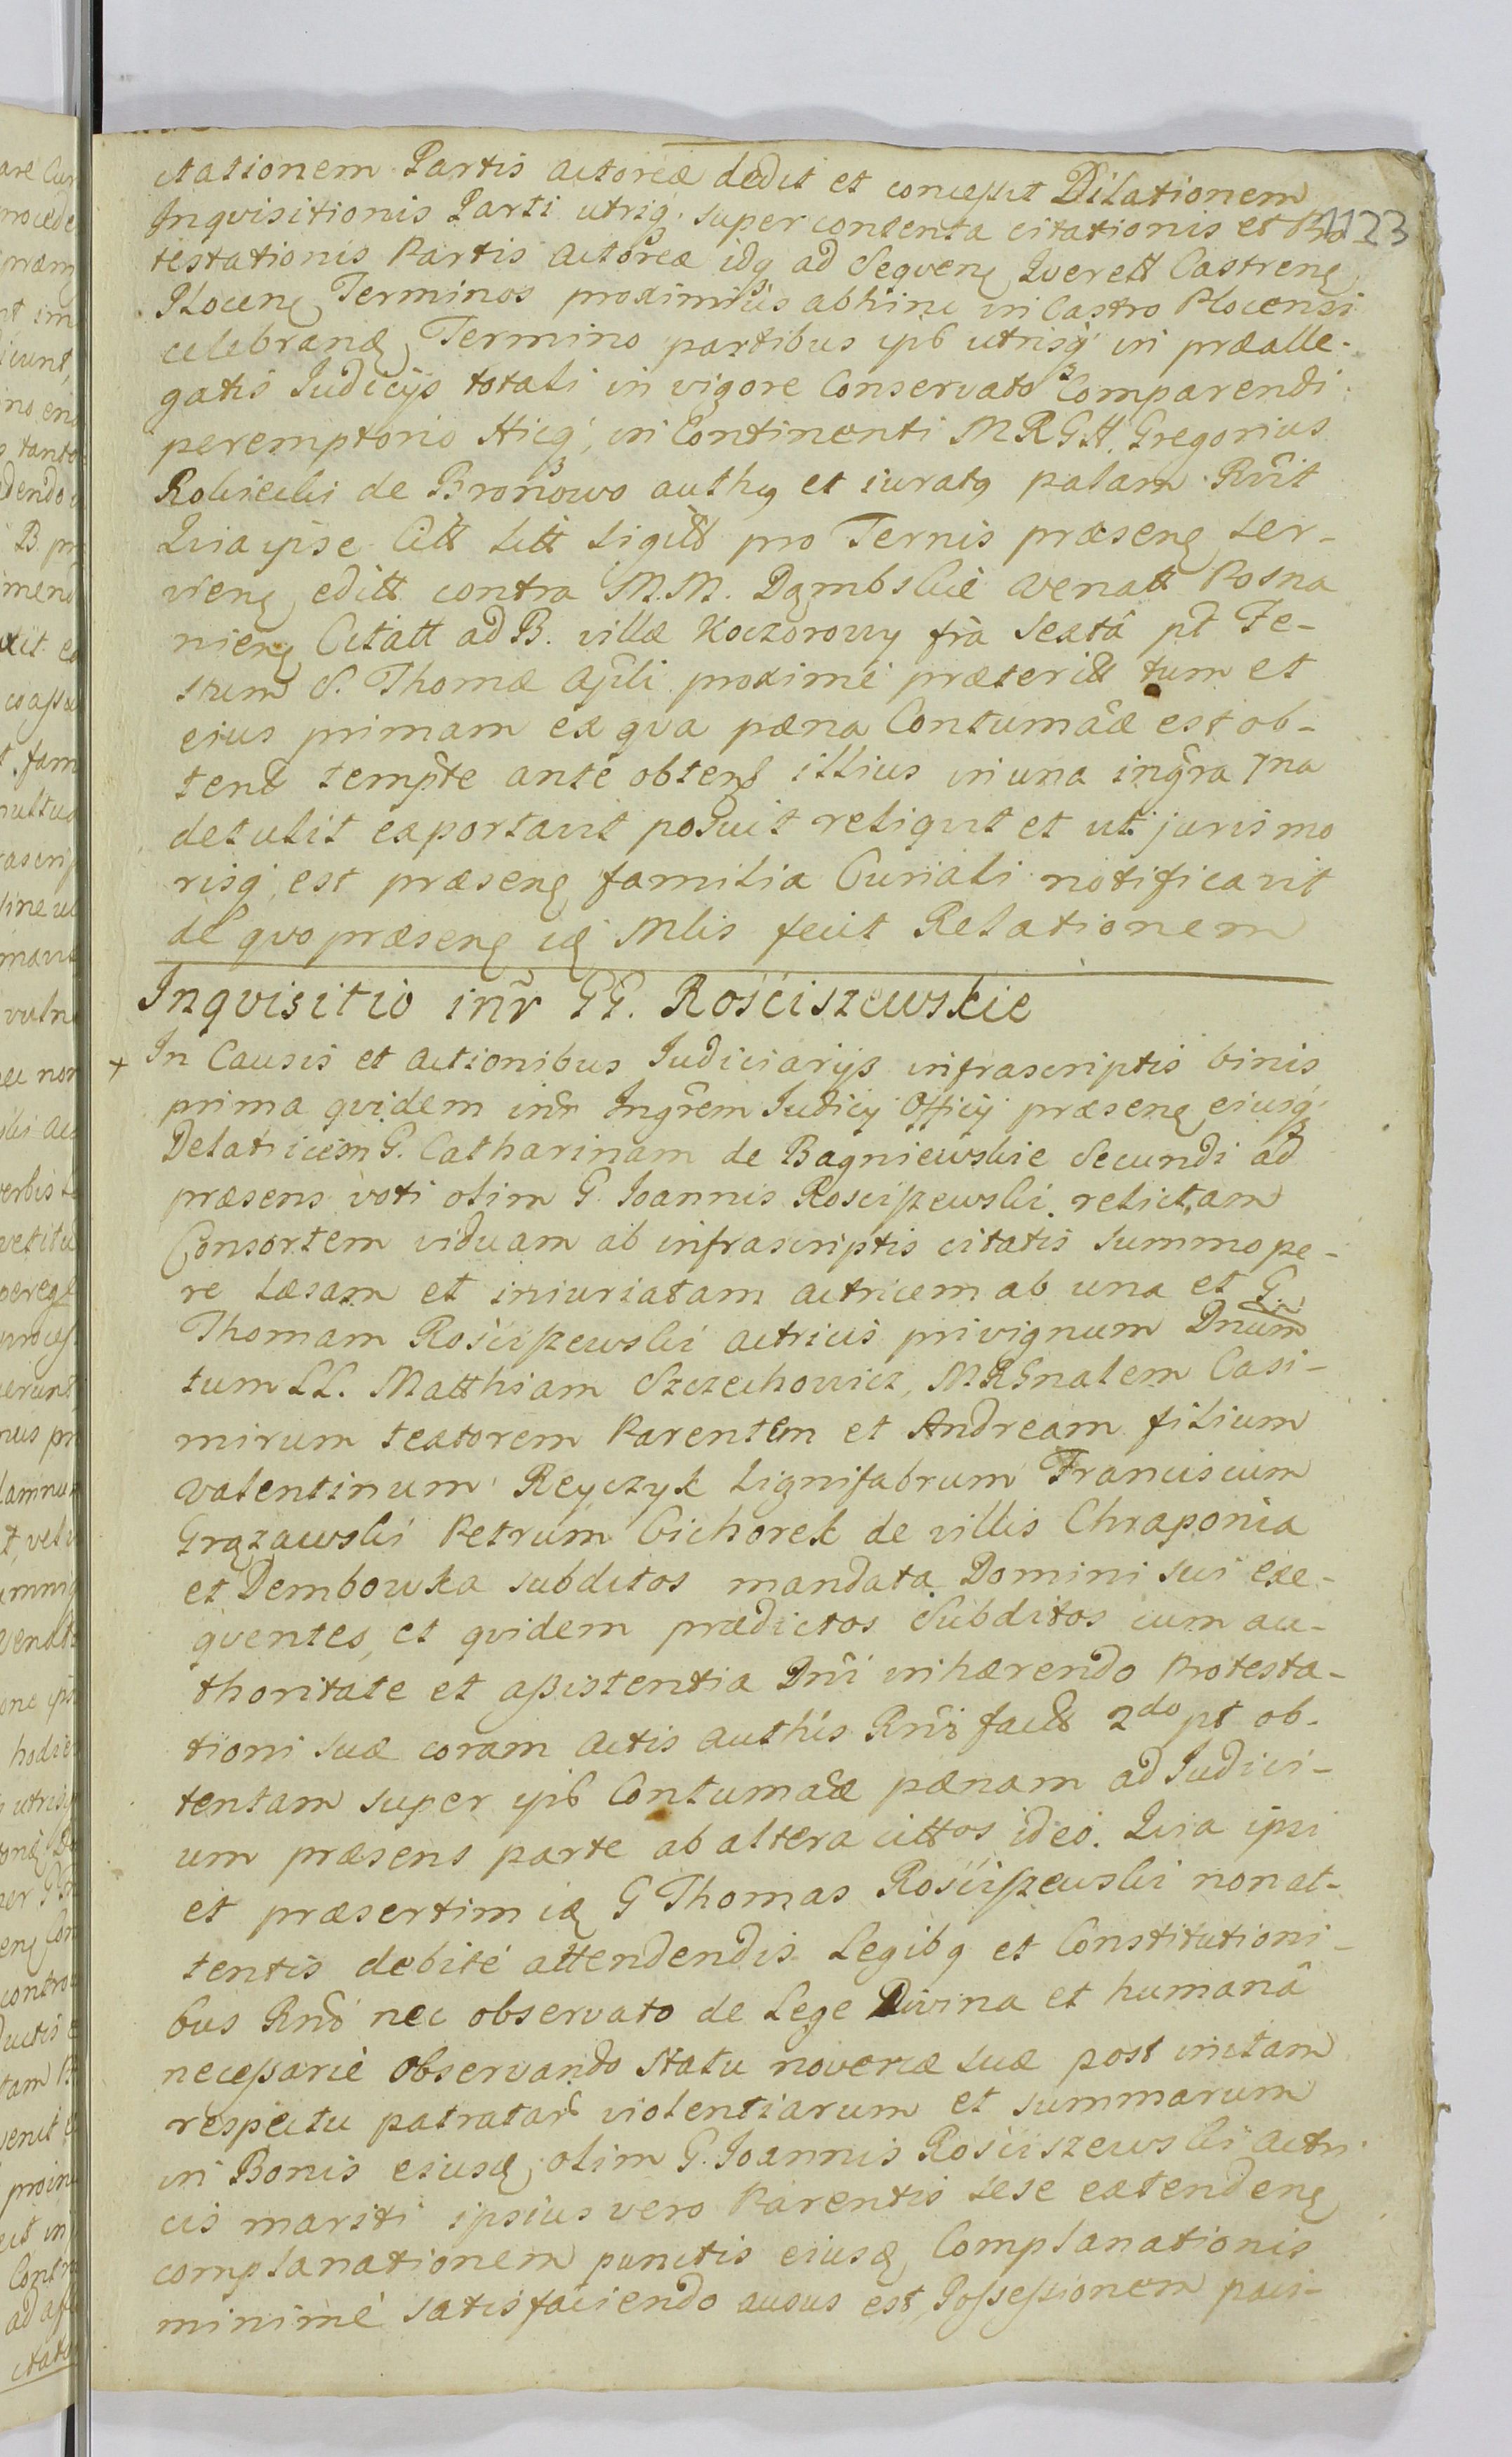 ctationem Partis actoreæ dedit et concessit Dilationem
Inqvisitionis Parti utriq; super contenta citationis et Pro-
1123
testationis Partis actoreæ idq ad Seqvenę Qverell Castrenę
Plocenę Terminos proximius abhinc in Castro Plocensi
celebranđ Termino partibus ipīs utrisq; in prealle-
gatis Judicijs totali in vigore Conservato Comparendi
peremptorio Hicq; in Continenti M R G H. Gregorius
Robiecki de Bronowo authę et iuratę palam Rn̄it
Qvia ipse Citt Litt Sigitt pro Ternis præsenę ser-
vienę, editt contra M. M. Dąmbskie Venatt Posna
nienę Citatt ad B. villæ Koczorowy fr̄ia Sextâ pt̄ Fe-
stum S. Thomæ Ap̄li proximé præteritt tum et
eius primam ex qva pæna Contumac̄æ est ob-
tentđ temp̄te anté obtenđ illius in una ing̃ra 7na
detulit exportavit posuit reliqvit et uti juris mo
risq; est præsenę familia Curiali notificavit
de qvo præsenę idę Mlis fecit Relationem
Inqvisitio int̃r GG. Rościszewskie
+ In Causis et actionibus Judiciarijs infrascriptis binis
prima qvidem int̃r Ing̃rem Judicij Officij præsenę eiusq;
Delatricem G. Catharinam de Bagniewskie Secundi ad
præsens voti olim G. Joannis Rościszewski relictam
Consortem viduam ab infrascriptis citatis summope-
re læsam et iniuriatam actricem ab una et G.
Thomam Rościszewski actricis privignum Dn̄um
tum LL. Matthiam Szczechowicz, M R G nalem Casi-
mirum textorem Parentem et Andream filium
Valentinum Reyczyk Lignifabrum Franciscum
Grązawski Petrum Cichorek de villis Chraponia
et Dembowka subditos mandata Domini sui exe-
qventes, et qvidem prædictos Subditos cum au-
thoritate et assistentia Dn̄i inhærendo Protesta-
tioni suæ coram actis authīs Rn̄is factt 2do pt ob-
tentam super ipīs Contumac̄æ pænam ad Judici-
um præsens parte ab altera cittos ideo. Qvia ipsi
et præsertim idę G Thomas Rościszewski non at-
tentis debité attendendis Legibę et Constitutioni-
bus Rn̄i nec observato de Lege Divina et humanâ
necessarié observando statu novercæ suæ post initam
respectu patratarđ violentiarum et summarum
in Bonis eiusđ, olim G. Joannis Rościszewski actri-
cis mariti ipsius vero Parentis sese extendenę
complanationem punctis eiusđ Complanationis
minimé satisfaciendo ausus est Possessionem paci-